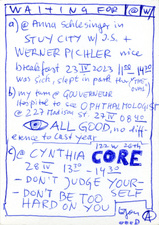 WAITING FOR @ W
a) @ Anna Schlesinger in
STUY CITY w J.S. +
WERNER PICHLER nice
breakfast 23 IV 2023 11:00-14:30
was sick, slept in park
b) my turn @ GOUVERNEUR
Hospital to see OPHTHALMOLOGIST
@ 227 Madison St. 27 IV 08:40
ALL GOOD, no dif-
ference to last year
c) @ CYNTHIA CORE
122 W 26th
28 IV 13:30 - 14:30
- DON'T JUDGE YOUR-
SELF
- DON'T BE TOO
HARD ON YOU